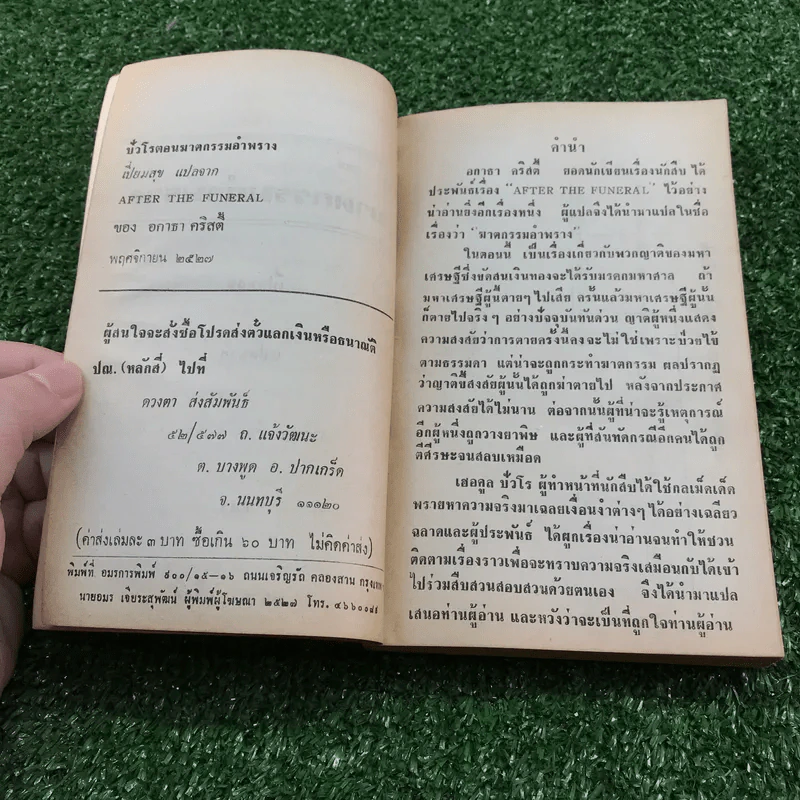 ปัวโรตอนฆาตกรรมอำพราง
เปี่ยมสุข แปลจาก
AFTER THE FUNERAL
ของ อกาธา คริสตี้
พฤศจิกายน ๒๕๒๗
ผู้สนใจจะสั่งซื้อโปรดส่งตั๋วแลกเงินหรือธนาณัติ
ปณ. (หลักสี่) ไปที่
ดวงตา ส่งสัมพันธ์
๕๒/๕๗๗ ถ. แจ้งวัฒนะ
ต. บางพูด อ. ปากเกร็ด
จ. นนทบุรี ๑๑๑๒๐
(ค่าส่งเล่มละ ๓ บาท ซื้อเกิน ๖๐ บาท ไม่คิดค่าส่ง)
พิมพ์ที่ อมรการพิมพ์ ๙๐๐/๑๕-๑๖ ถนนเจริญรัถ คลองสาน
นายอมร เจียระสุพัฒน์ ผู้พิมพ์ผู้โฆษณา ๒๕๒๗ โทร.
คำนำ
อกาธา คริสตี้ ยอดนักเขียนเรื่องนักสืบ ได้
ประพันธ์เรื่อง "AFTER THE FUNERAL" ไว้อย่าง
น่าอ่านยิ่งอีกเรื่องหนึ่ง ผู้แปลจึงได้นำมาแปลในชื่อ
เรื่องว่า "ฆาตกรรมอำพราง"
ในตอนนี้ เป็นเรื่องเกี่ยวกับพวกญาติของมหา
เศรษฐีซึ่งขัดสนเงินทองจะได้รับมรดกมหาศาล ถ้า
มหาเศรษฐีผู้นี้ตายๆ ไปเสีย ครั้นแล้วมหาเศรษฐีผู้นั้น
ก็ตายไปจริงๆ อย่างปัจจุบันทันด่วน ญาติผู้หนึ่งแสดง
ความสงสัยว่าการตายครั้งนี้คงจะไม่ใช่เพราะป่วยไข้
ตามธรรมดา แต่น่าจะถูกกระทำฆาตกรรม ผลปรากฏ
ว่าญาติขี้สงสัยผู้นั้นได้ถูกฆ่าตายไป หลังจากประกาศ
ความสงสัยได้ไม่นาน ต่อจากนั้นผู้ที่น่าจะรู้เหตุการณ์
อีกผู้หนึ่งถูกวางยาพิษ และผู้ที่สันทัดกรณีอีกคนได้ถูก
ตีศีรษะจนสลบเหมือด
เฮอคูล ปัวโร ผู้ทำหน้าที่นักสืบได้ใช้กลเม็ดเด็ด
พรายหาความจริงมาเฉลยเงื่อนงำต่างๆ ได้อย่างเฉลียว
ฉลาดและผู้ประพันธ์ ได้ผูกเรื่องน่าอ่านจนทำให้ชวน
ติดตามเรื่องราวเพื่อจะทราบความจริงเสมือนกับได้เข้า
ไปร่วมสืบสวนสอบสวนด้วยตนเอง จึงได้นำมาแปล
เสนอท่านผู้อ่าน และหวังว่าจะเป็นที่ถูกใจท่านผู้อ่าน